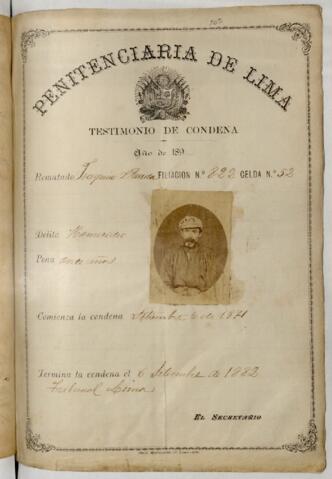 PENITENCIARIA DE LIMA
TESTIMONIO DE CONDENA
Año de 189
Rematado FILIACION N.° 822 CELDA N.° 52
Delito Homicidio
Pena once años
Comienza la condena Setiembre 6 de 1871
Termina la condena el 6 Setiembre de 1882
Tribunal Lima
EL SECRETARIO